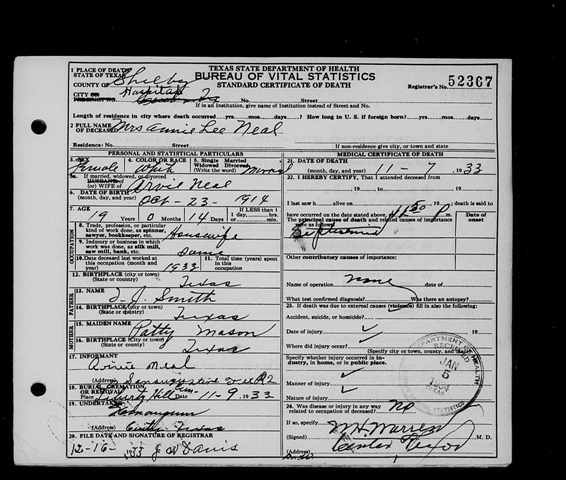 TEXAS STATE DEPARTMENT OF HEALTH
BUREAU OF VITAL STATISTICS
STANDARD CERTIFICATE OF DEATH
Registrar's No. 52367
1 PLACE OF DEATH
STATE OF TEXAS
COUNTY OF Shelby
CITY OR
No. Street
If in an institution, give name of institution instead of Street and No.
Length of residence in city where death occurred yrs. mos. days? How long in U. S. if foreign born? yrs. mos. days
2 FULL NAME OF DECEASED Mrs Annie Lee Neal
Residence: No. Street
If non-residence give city, or town and state
PERSONAL AND STATISTICAL PARTICULARS
3. SEX Female
4. COLOR OR RACE White
5. Single Married Widowed Divorced (Write the word) Married
5a. If married, widowed, or divorced HUSBAND or WIFE OF Arvie Neal
6. DATE OF BIRTH (month, day, year) Oct - 23 - 1914
7. AGE 19 Years 0 Months 14 Days If LESS than 1 day, hrs. min.
OCCUPATION
8. Trade, profession, or particular kind of work done, as spinner, sawyer, bookkeeper, etc. Housewife
9. Industry or business in which work was done, as silk mill, saw mill, bank, etc. Same
10. Date deceased last worked at this occupation (month and year) 1933
11. Total time (years) spent in this occupation
12. BIRTHPLACE (city or town) (State or country) Texas
FATHER
13. NAME T. J. Smith
14. BIRTHPLACE (city or town) (State or country) Texas
MOTHER
15. MAIDEN NAME Patty Mason
16. BIRTHPLACE (city or town) (State or country) Texas
17. INFORMANT Arvie Neal
(Address)
18. BURIAL, CREMATION, OR REMOVAL Hill 11-9 1933
19. UNDERTAKER
Center Texas
20. FILE DATE AND SIGNATURE OF REGISTRAR
12-16- 33 Davis
MEDICAL CERTIFICATE OF DEATH
21. DATE OF DEATH (month, day, year) 11 - 1933
22. I HEREBY CERTIFY, That I attended deceased from
19 to 19
I last saw h alive on 19 ; death is said to
have occurred on the date stated above, at m.
The principal causes of death and related causes of importance were as follows:
Date of onset
Other contributory causes of importance:
Name of operation none Date of
What test confirmed diagnosis? Was there an autopsy?
23. If death was due to external causes (violence) fill in also the following:
Accident, suicide, or homicide?
Date of injury 19
Where did injury occur?
(Specify city or town, county, and State)
Specify whether injury occurred in industry, in home, or in public place.
Manner of injury
Nature of injury
24. Was disease or injury in any way related to occupation of deceased? No
If so, specify
(Signed) W H Warren M. D.
(Address) Center Texas
DEPARTMENT OF HEALTH
RECEIVED
JAN
1934
STATISTICS